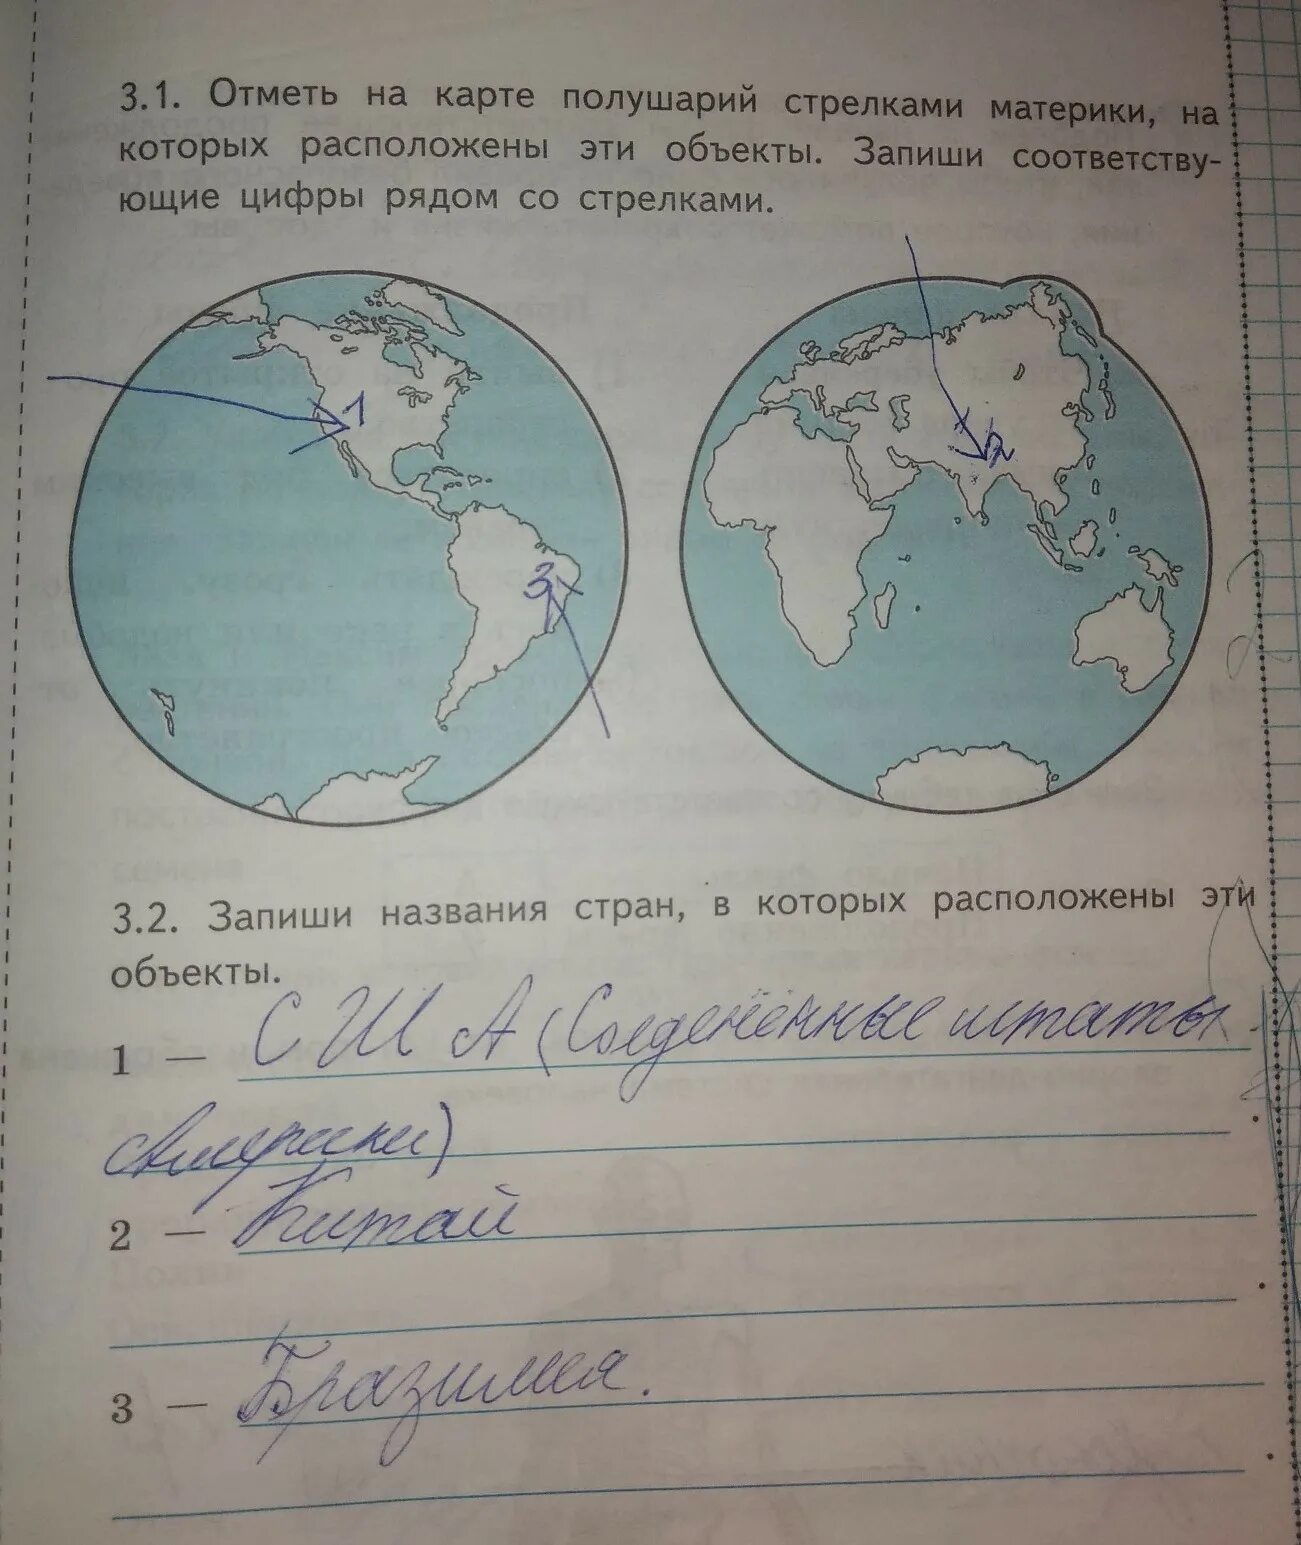 3.1. Отметь на карте полушарий стрелками материки, на
которых расположены эти объекты. Запиши соответству-
ющие цифры рядом со стрелками.
1
2
3
3.2. Запиши названия стран, в которых расположены эти
объекты.
1 — США (Соеденённые штаты
Америки)
2 — Китай
3 — Бразилия.